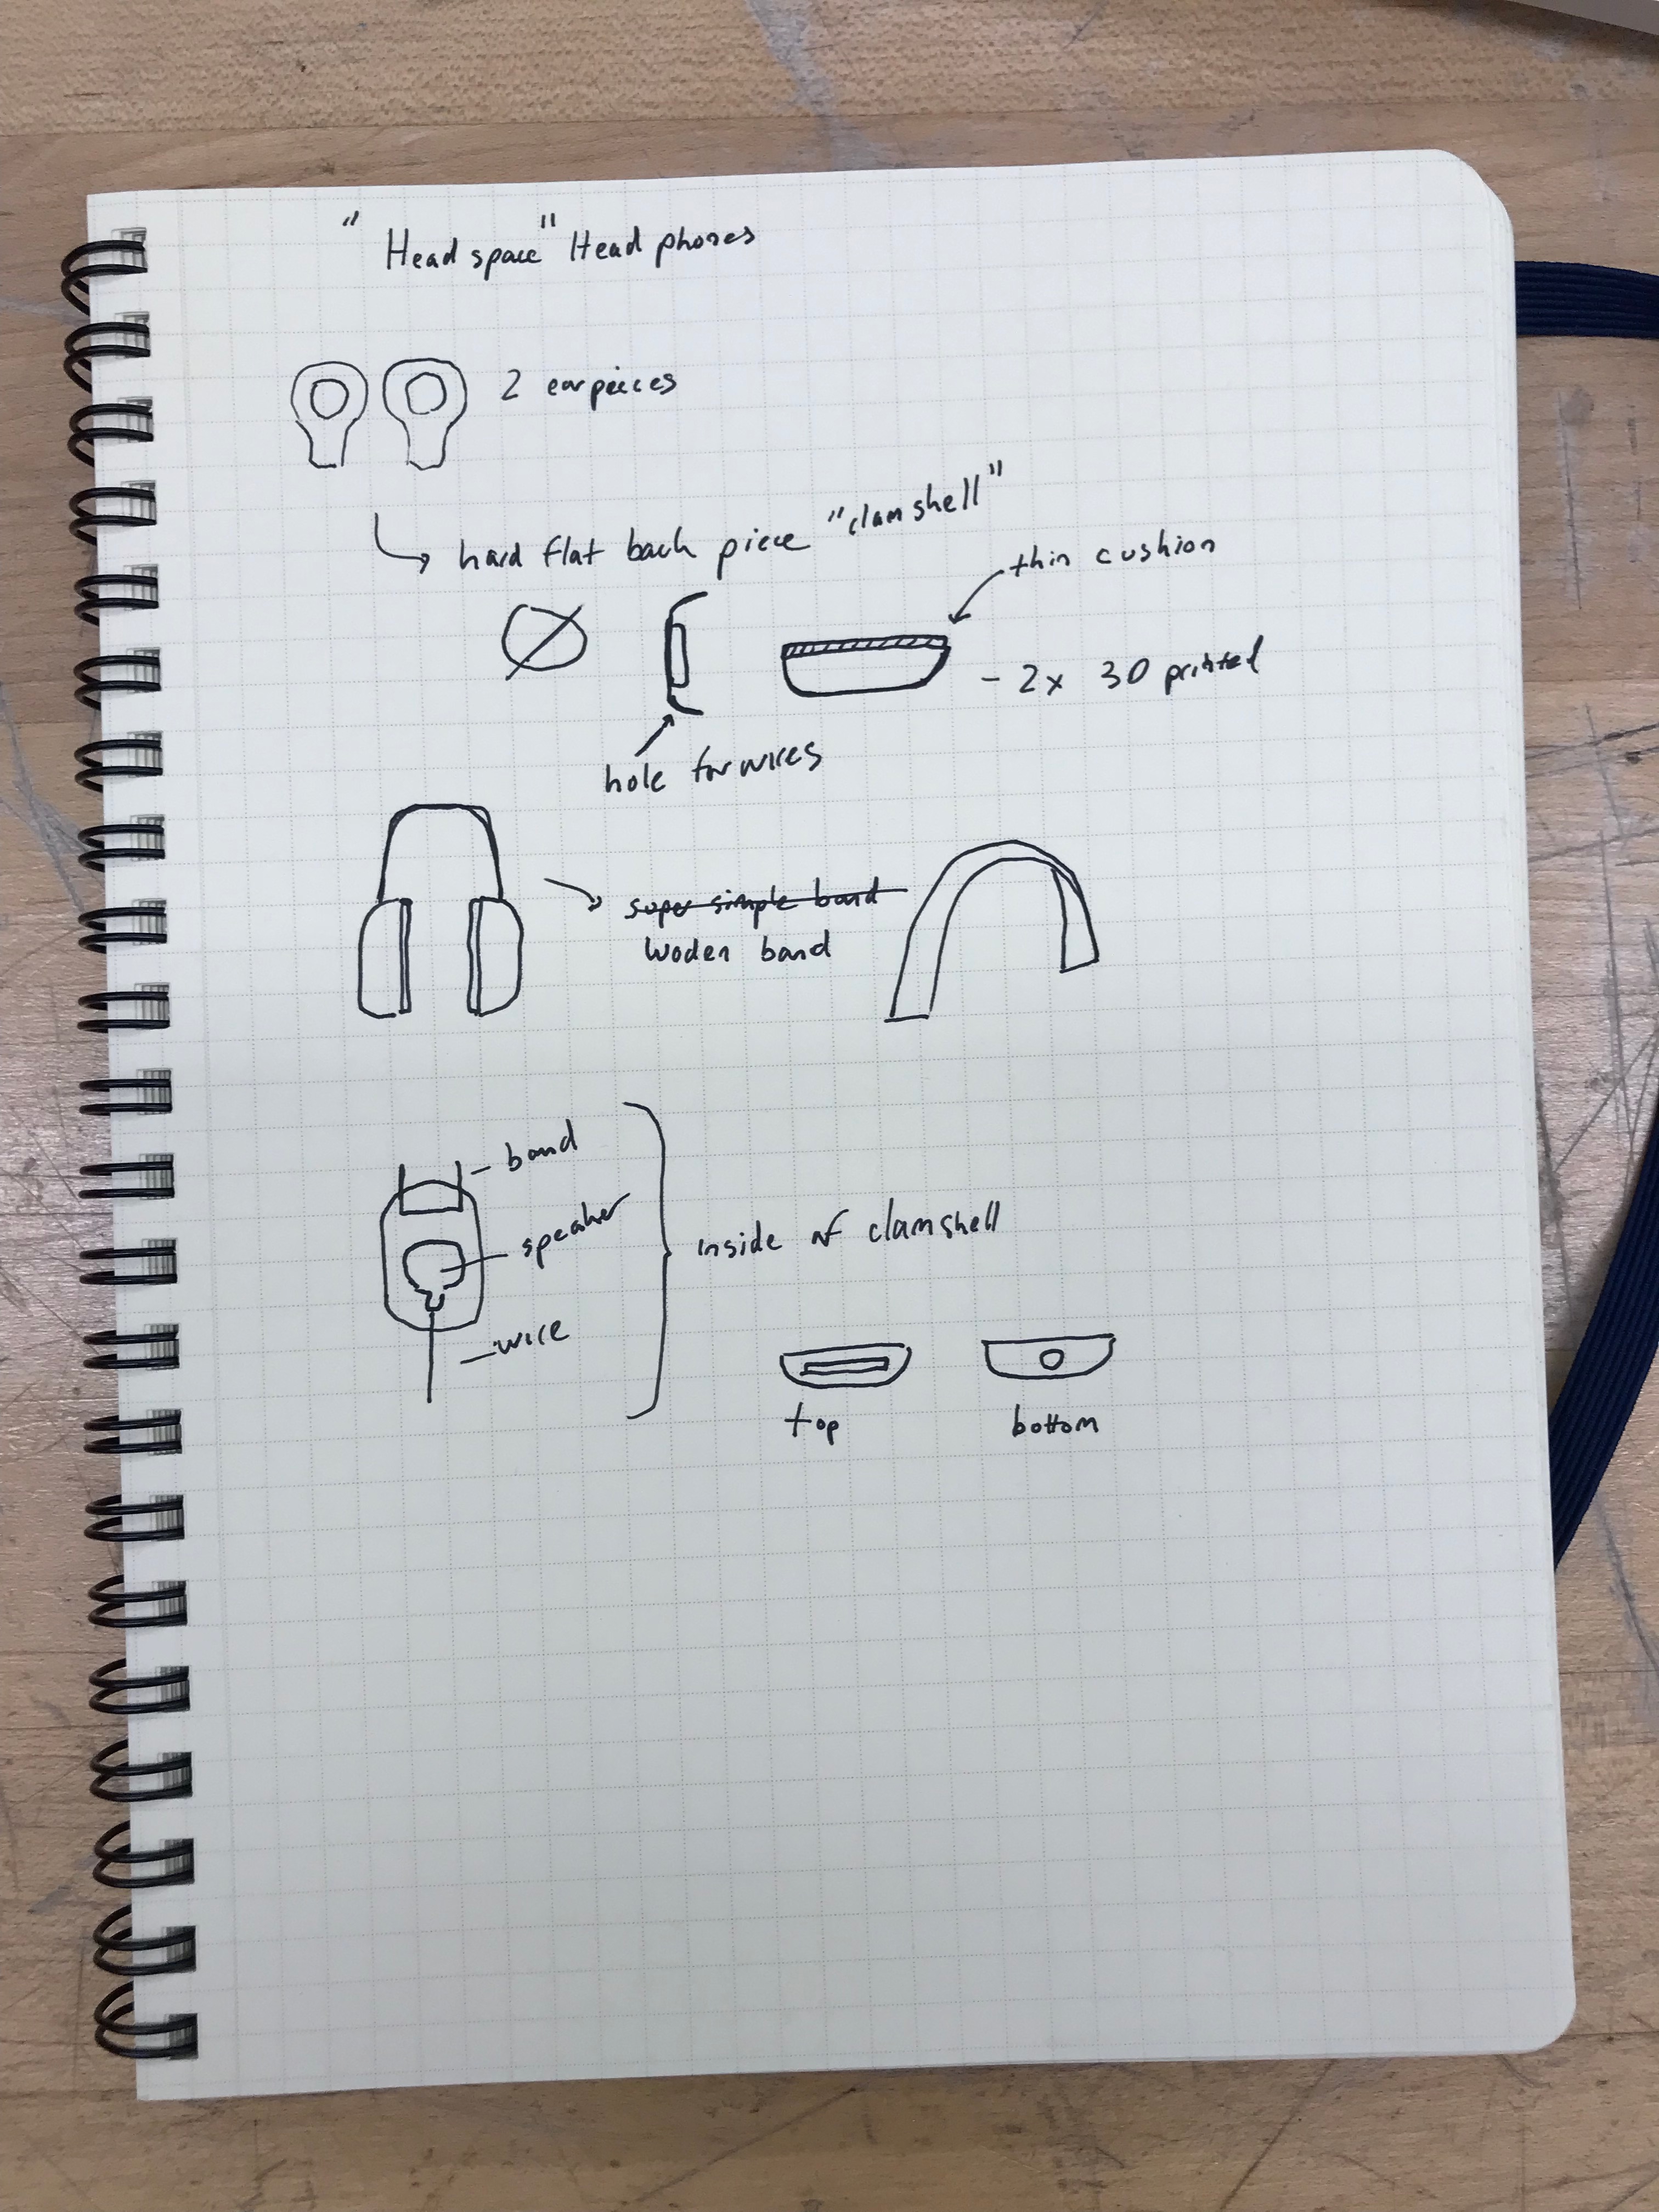 "Headspace" Headphones
2 earpieces
hard flat back piece "clamshell"
thin cushion
- 2x 3D printed
hole for wires
super simple band
Woden band
band
speaker
inside of clamshell
wire
top
bottom